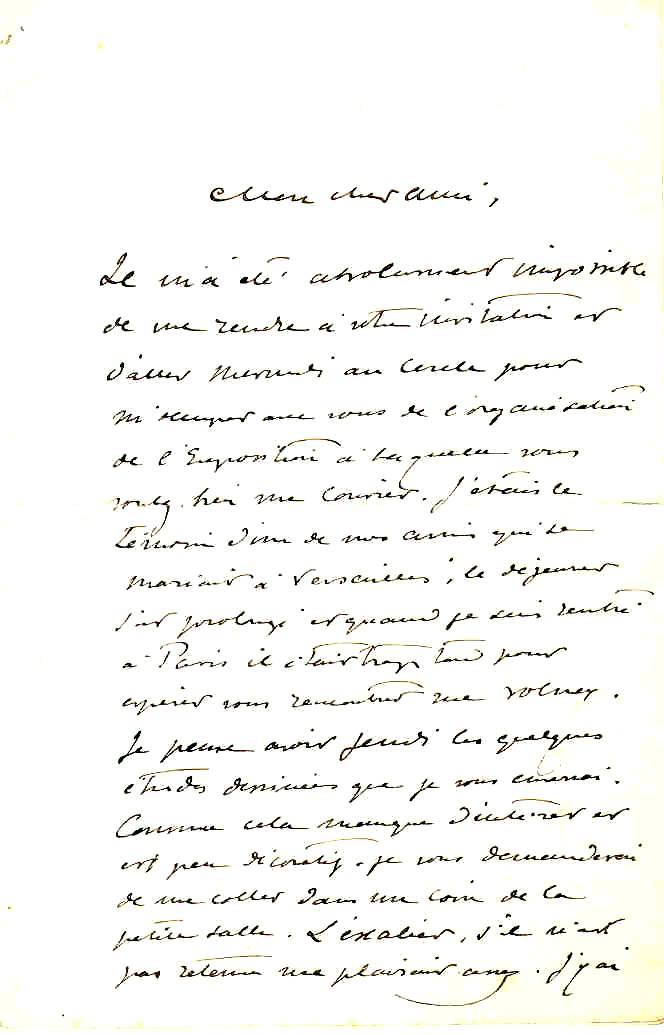 Mon cher ami,
Il m'a été absolument impossible
de me rendre à votre invitation et
d'aller Mercredi au Cercle pour
m'occuper avec vous de l'organisation
de l'Exposition à laquelle vous
voulez bien me convier. J'étais le
témoin d'un de nos amis qui se
mariait à Versailles, le déjeuner
s'est prolongé et quand je suis rentré
à Paris il était trop tard pour
espérer vous rencontrer rue Volney.
Je pense avoir Jeudi les quelques
études dessinées que je vous enverrai.
Comme cela manque d'intérêt et
est peu décoratif. je vous demanderai
de me coller dans un coin de la
petite salle. L'escalier, s'il n'est
pas retenu me plairait assez. J'y ai